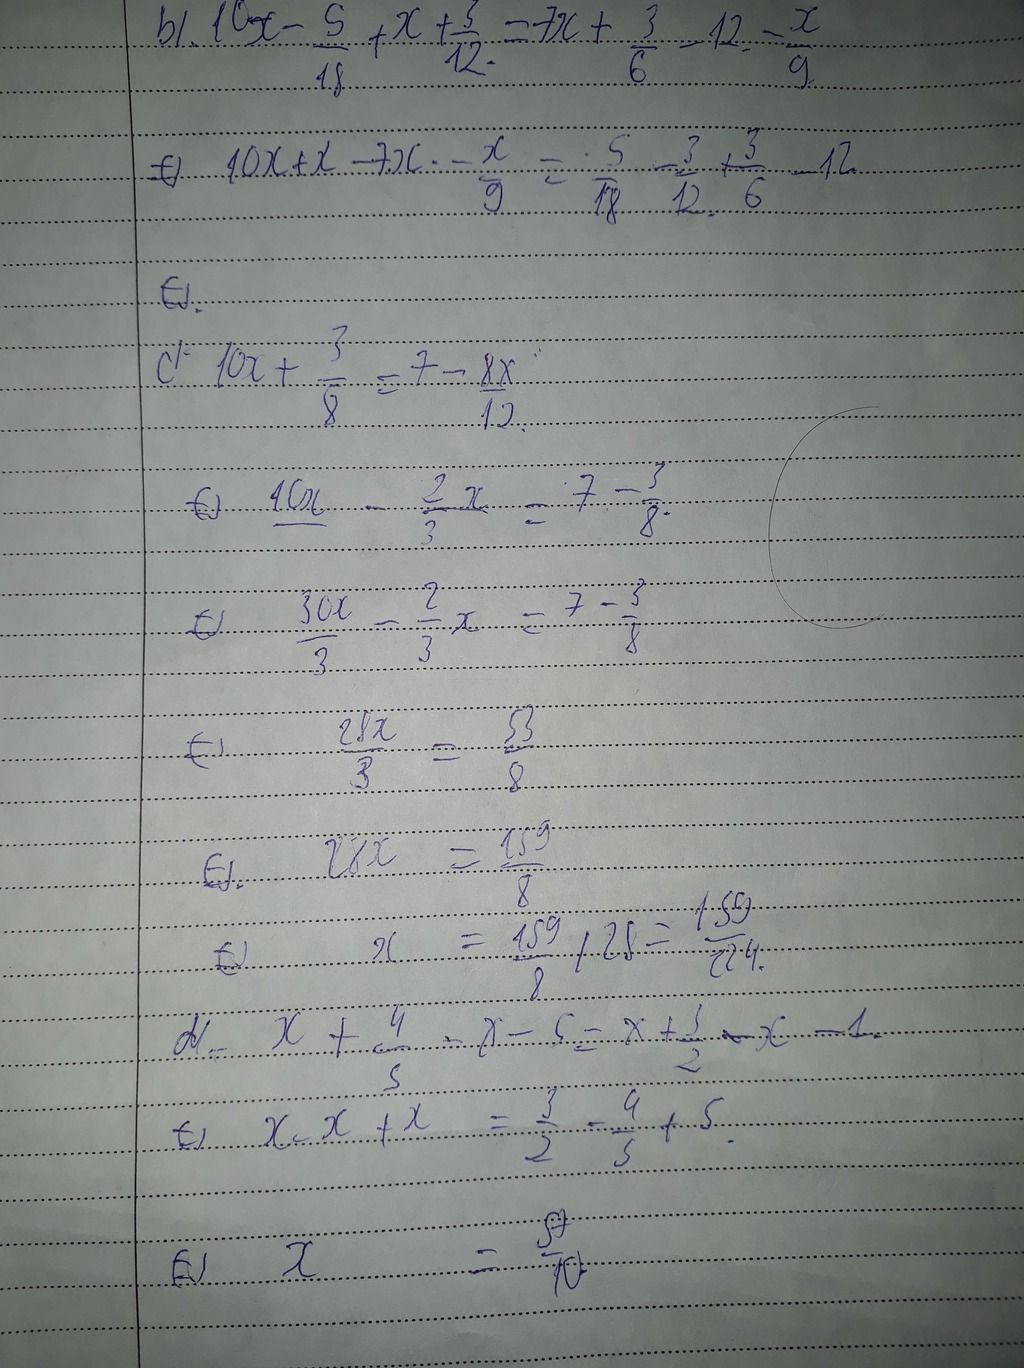 b). 10x - 5/18 + x + 3/12 = 7x + 3/6 - 12 - x/9
⇔ 10x + x - 7x - x/9 = 5/18 - 3/12 + 3/6 - 12
⇔
c) 10x + 3/8 = 7 - 8x/12
⇔ 10x - 2/3 x = 7 - 3/8
⇔ 30x/3 - 2/3 x = 7 - 3/8
⇔ 28x/3 = 53/8
⇔ 28x = 159/8
⇔ x = 159/8 / 28 = 159/224
d) x + 4/5 - x - 5 = x + 3/2 - x - 1
⇔ x - x + x = 3/2 - 4/5 + 5
⇔ x = 57/10